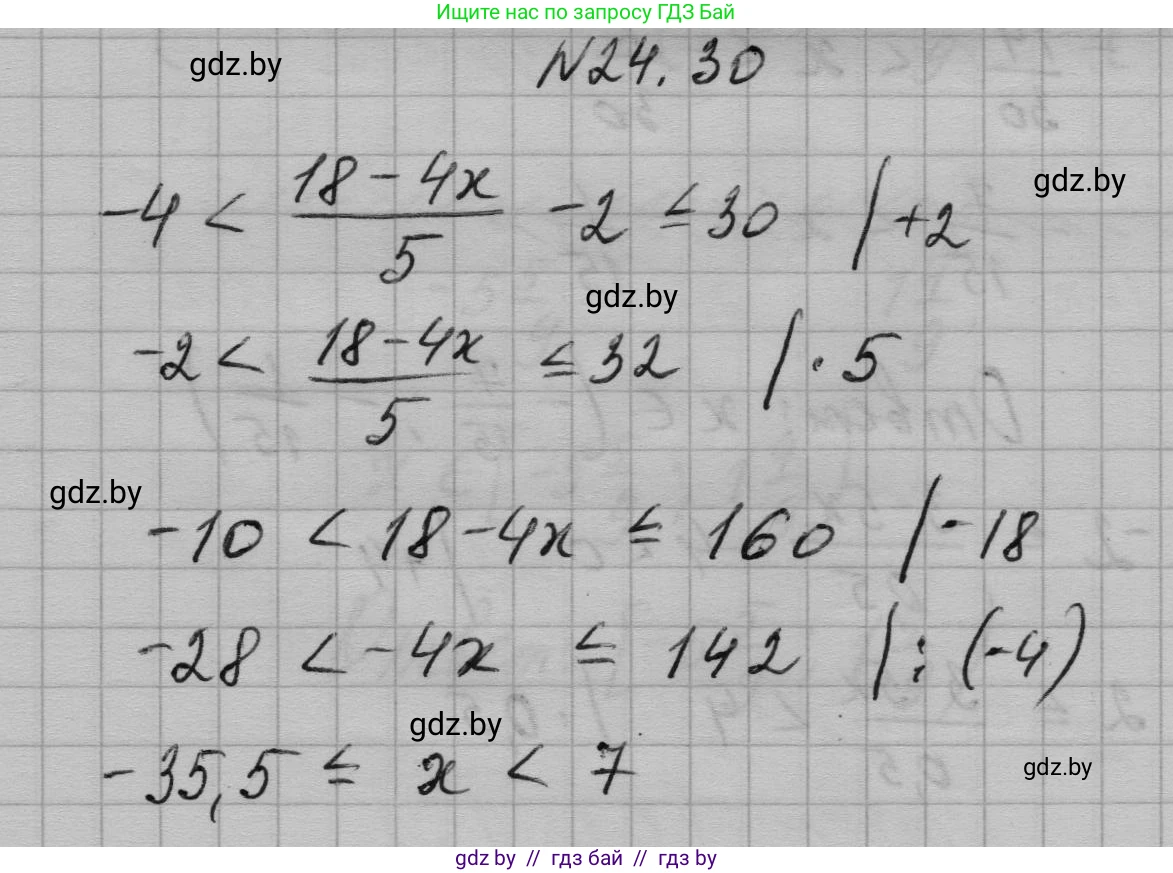 Ищите нас по запросу ГДЗ Бай
gdz.by
N24.30
-4 < (18-4x)/5 -2 ≤ 30 | +2
gdz.by
gdz.by
-2 < (18-4x)/5 ≤ 32 | · 5
gdz.by
-10 < 18-4x ≤ 160 | -18
-28 < -4x ≤ 142 | : (-4)
gdz.by
-35,5 ≤ x < 7
gdz.by
gdz by // гдз бай // гдз by